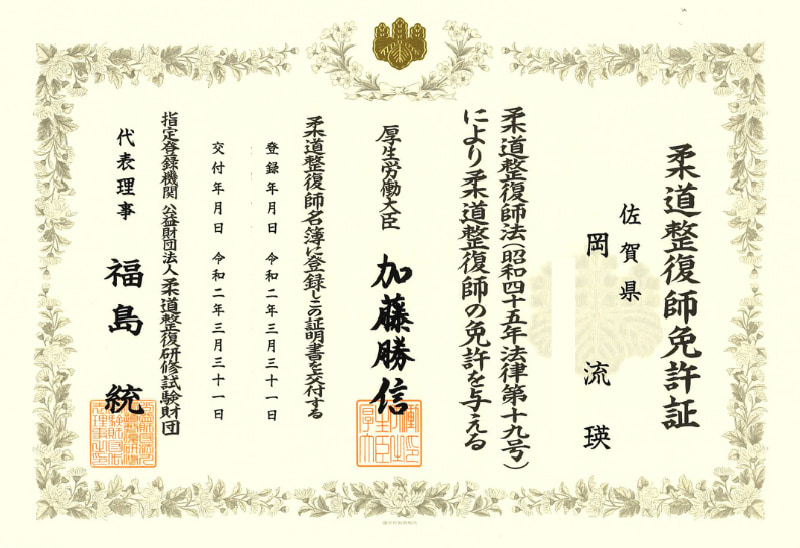 柔道整復師免許証
佐賀県
岡 流瑛
柔道整復師法(昭和四十五年法律第十九号)
により柔道整復師の免許を与える
厚生労働大臣 加藤勝信
柔道整復師名簿に登録しこの証明書を交付する
登録年月日 令和二年三月三十一日
交付年月日 令和二年三月三十一日
指定登録機関 公益財団法人 柔道整復研修試験財団
代表理事 福島 統